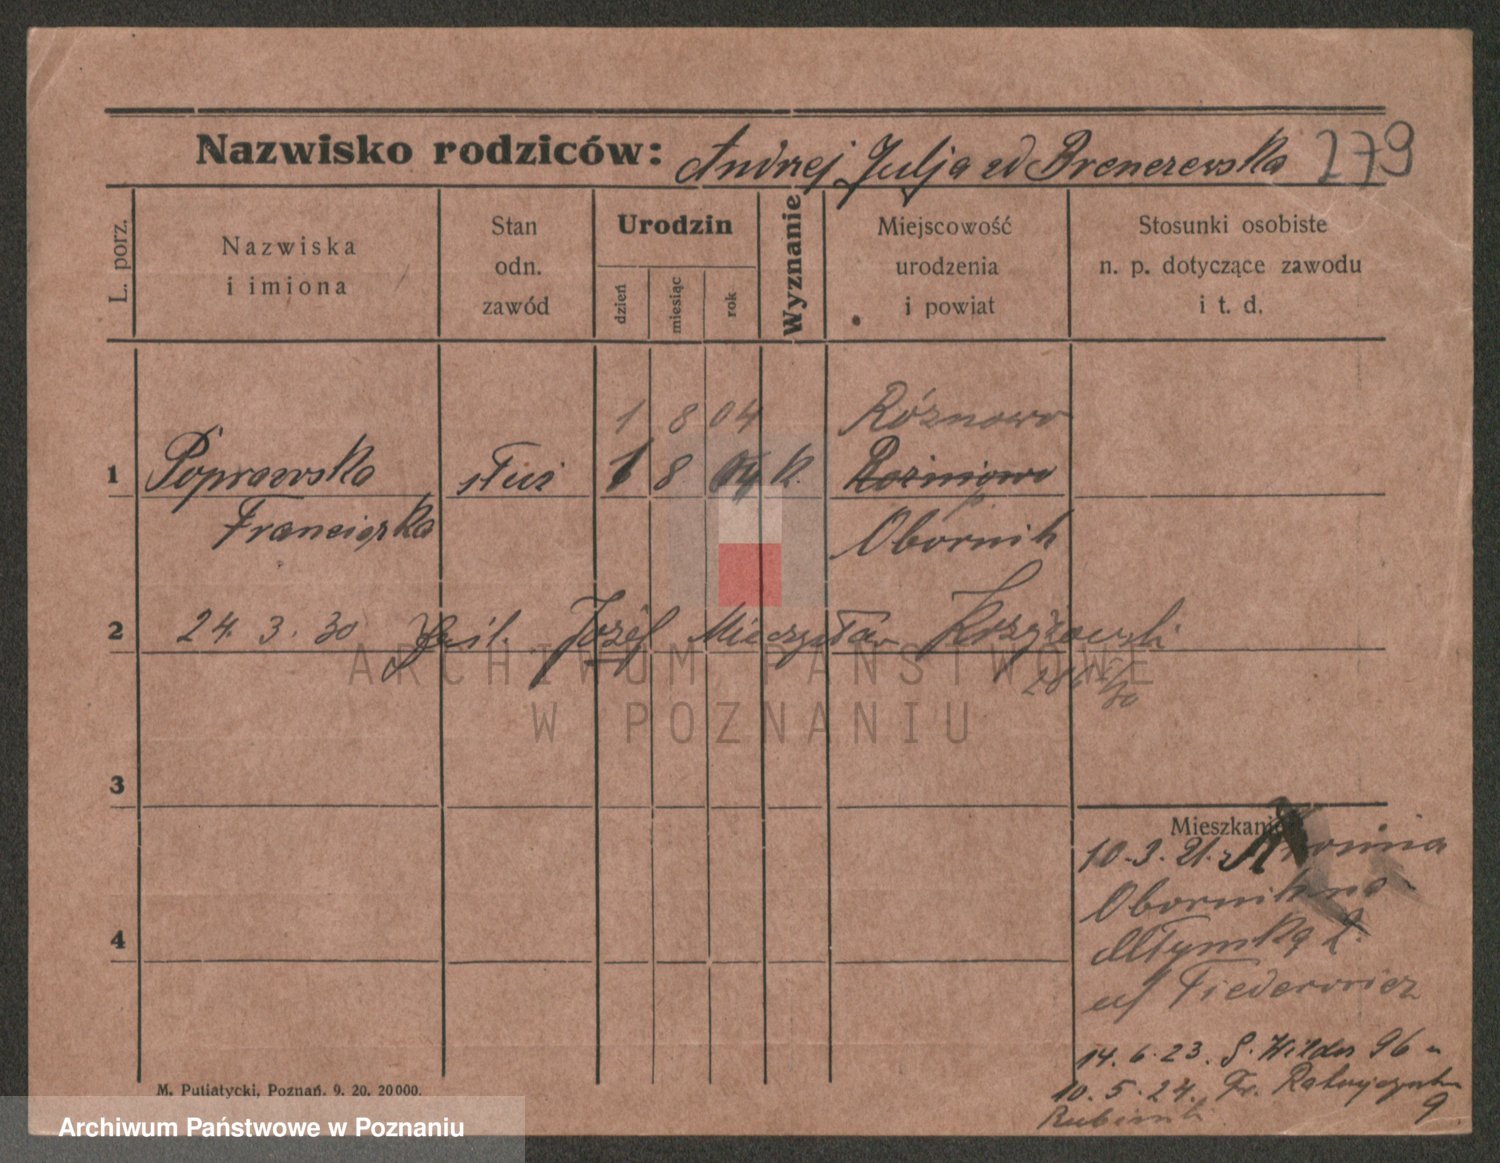 Nazwisko rodziców: Andrzej Julja zd Brenerewska 279
L. porz.
Nazwiska i imiona
Stan odn. zawód
Urodzin
dzień
miesiąc
rok
Wyznanie
Miejscowość urodzenia i powiat
Stosunki osobiste n. p. dotyczące zawodu i t. d.
1 8 04 Różnowo
1 Poprawska służ 1 8 04 k.
Franciszka Obornik
2 24. 3. 30 Józef Mieczysław Krzyżowski
3
Mieszkanie
10. 3. 21.
Oborniki
4 Młyńska 2.
u/ Fiederowicz
14. 6. 23. G. Wilda 96
10. 5. 24. Fr. Ratajczaka
9
M. Putiatycki, Poznań. 9. 20. 20000.
ARCHIWUM PAŃSTWOWE
W POZNANIU
Archiwum Państwowe w Poznaniu